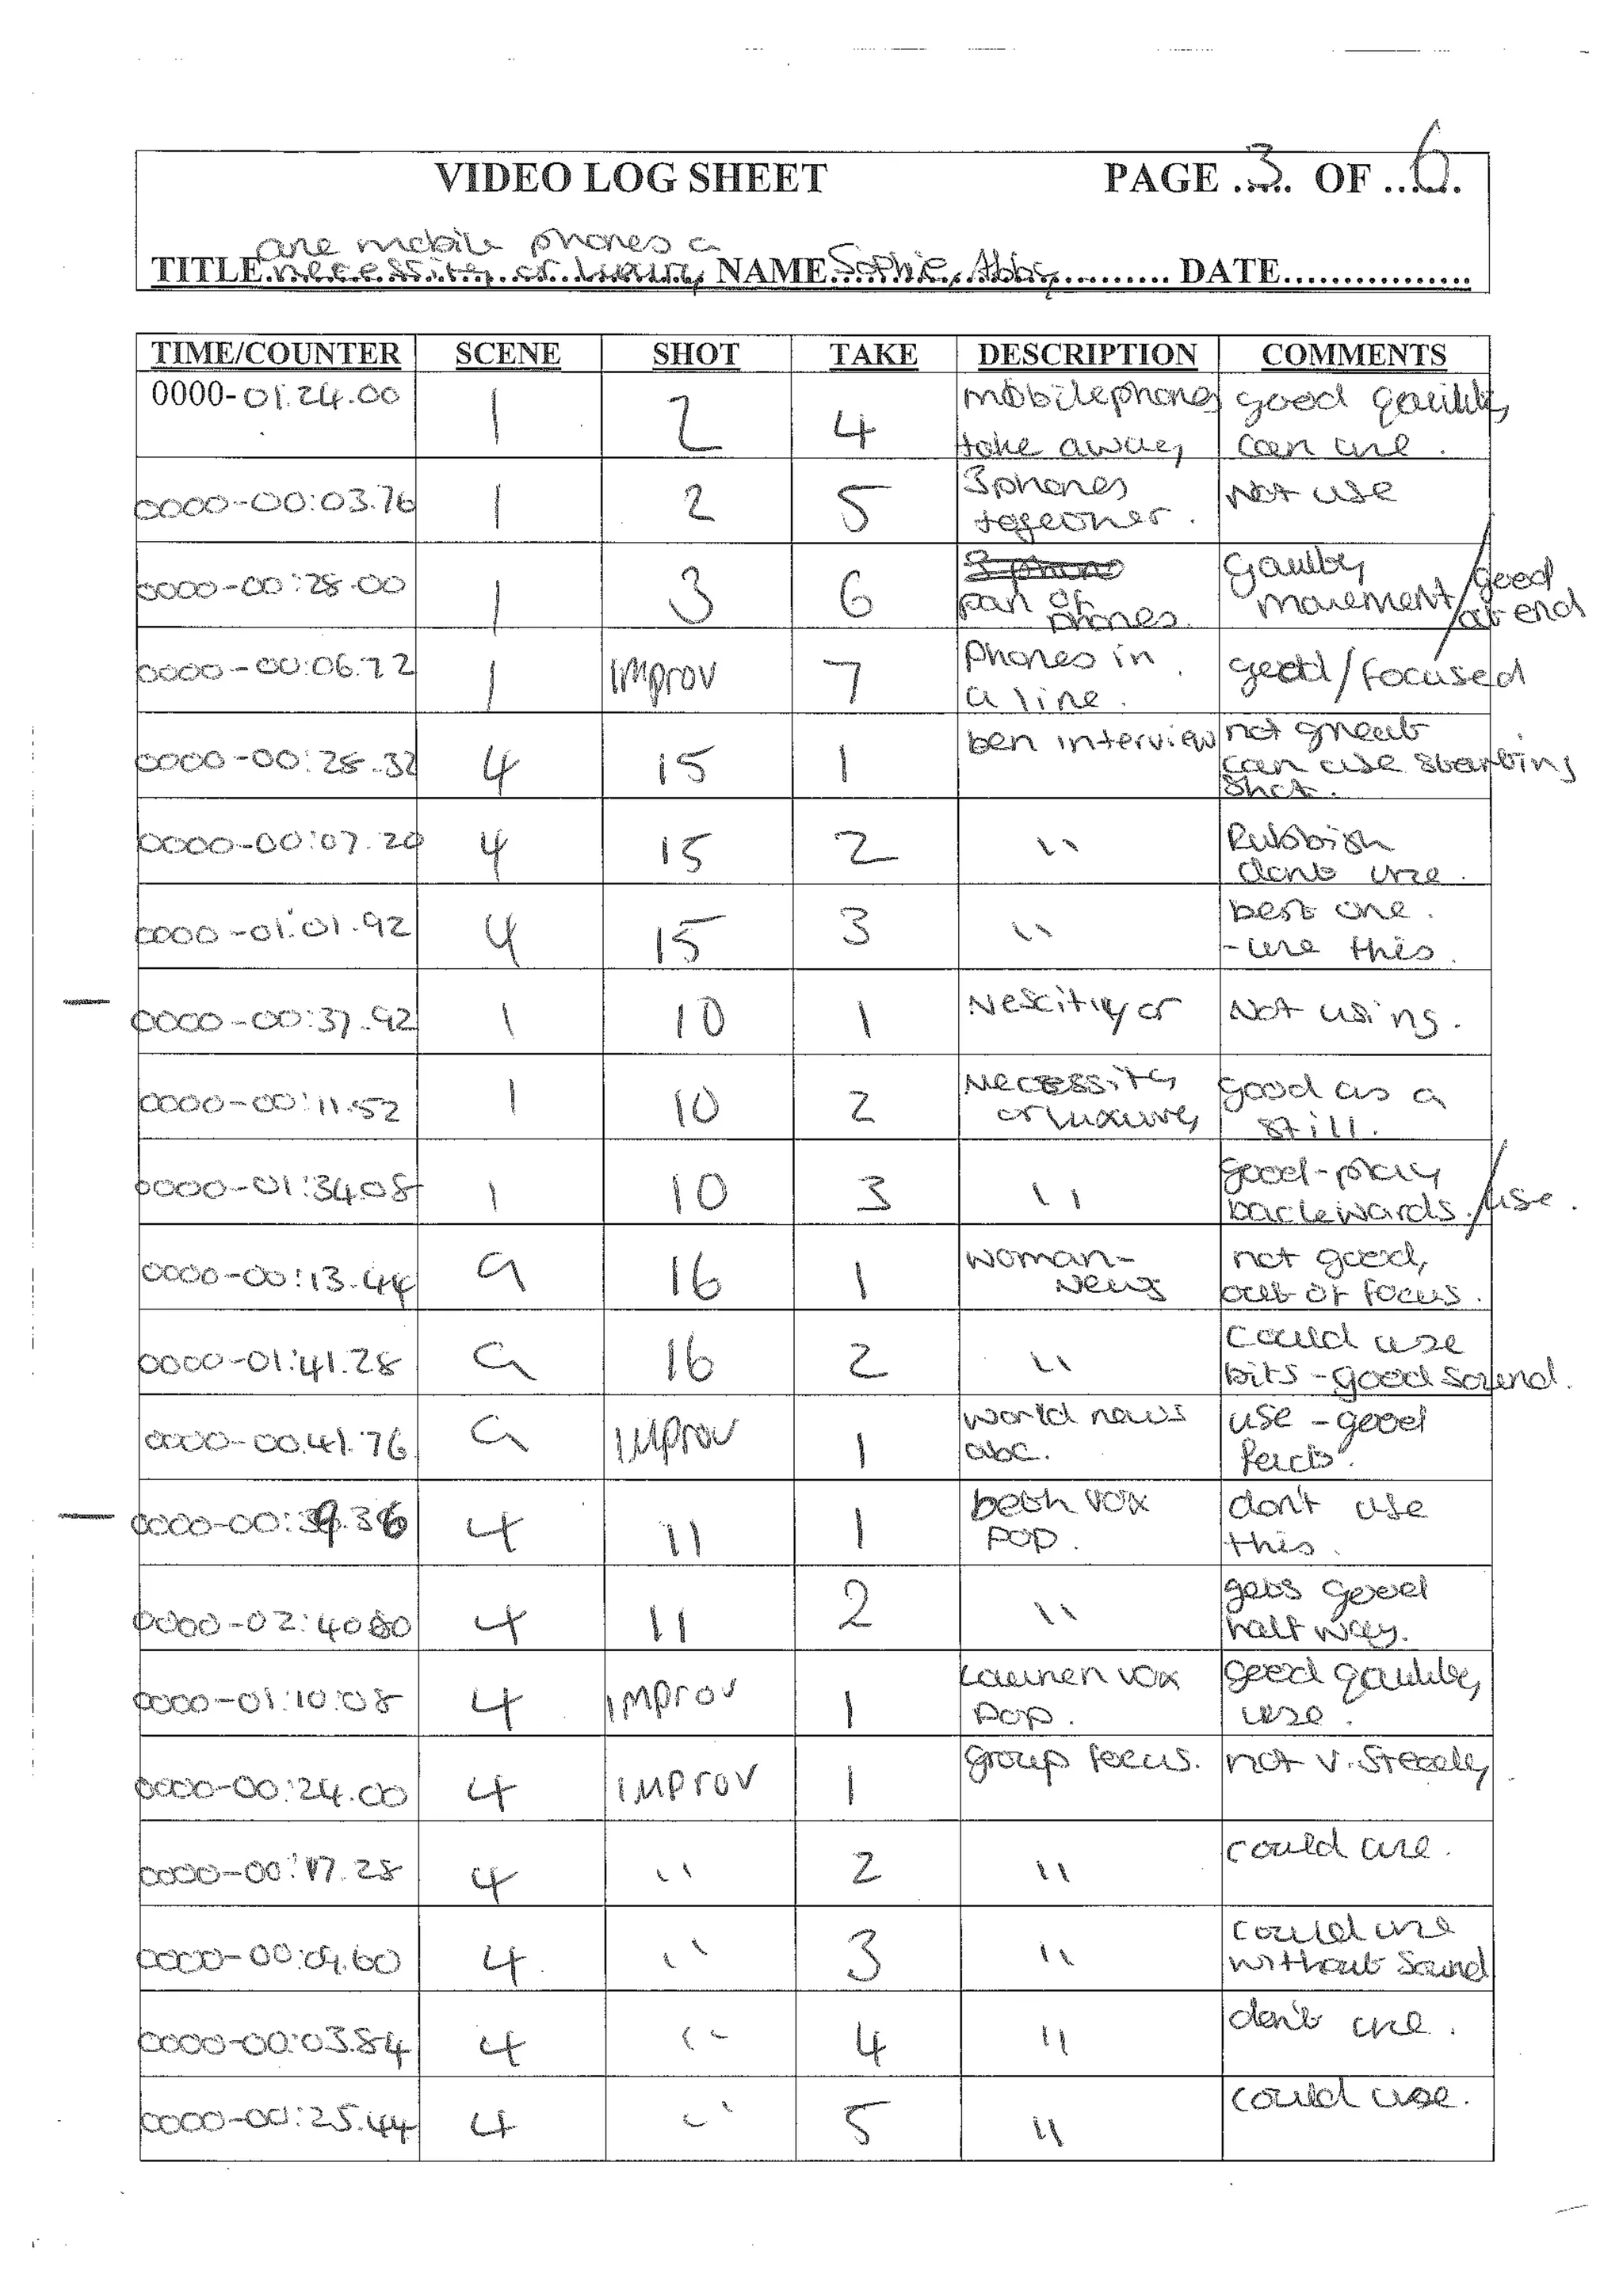 VIDEO LOG SHEET PAGE ..3.. OF ..6..
are mobile phones a
TITLE necessity or luxury NAME Sophie, Abby DATE
TIME/COUNTER SCENE SHOT TAKE DESCRIPTION COMMENTS
0000-01:24.00 1 2 4 mobile phones good qaulity
take away can use.
0000-00:03.76 1 2 5 3 phones Not use
together.
0000-00:28.00 1 3 6 3 phones qaulity
pan of movement / good
phones. at end
0000-00:06.72 1 Improv 7 Phones in good / focused
a line.
0000-00:28.32 4 15 1 ben interview not great
can use starting
shot.
0000-00:07.20 4 15 2 " Rubbish
dont use.
0000-01:01.92 4 15 3 " best one.
- use this.
0000-00:37.92 1 10 1 Nescitity or Not using.
0000-00:11.52 1 10 2 Necessity good as a
or luxury still.
0000-01:34.08 1 10 3 " good - play
backwards. / use.
0000-00:13.44 9 16 1 woman- not good,
News out of focus.
0000-01:41.28 9 16 2 " Could use
bits - good sound.
0000-00.41.76 9 Improv 1 world news use - good
abc. facts.
0000-00:39.36 4 11 1 beth vox don't use
pop. this.
0000-02:40.80 4 11 2 " gets good
half way.
0000-01:10:08 4 Improv 1 Lauren vox good qaulity
pop. use.
0000-00:24.00 4 Improv 1 group focus. not v. steady
0000-00:17.28 4 " 2 " could use.
0000-00:09.60 4 " 3 " could use
without sound
0000-00:03.84 4 " 4 " don't use.
0000-00:25.44 4 " 5 " could use.